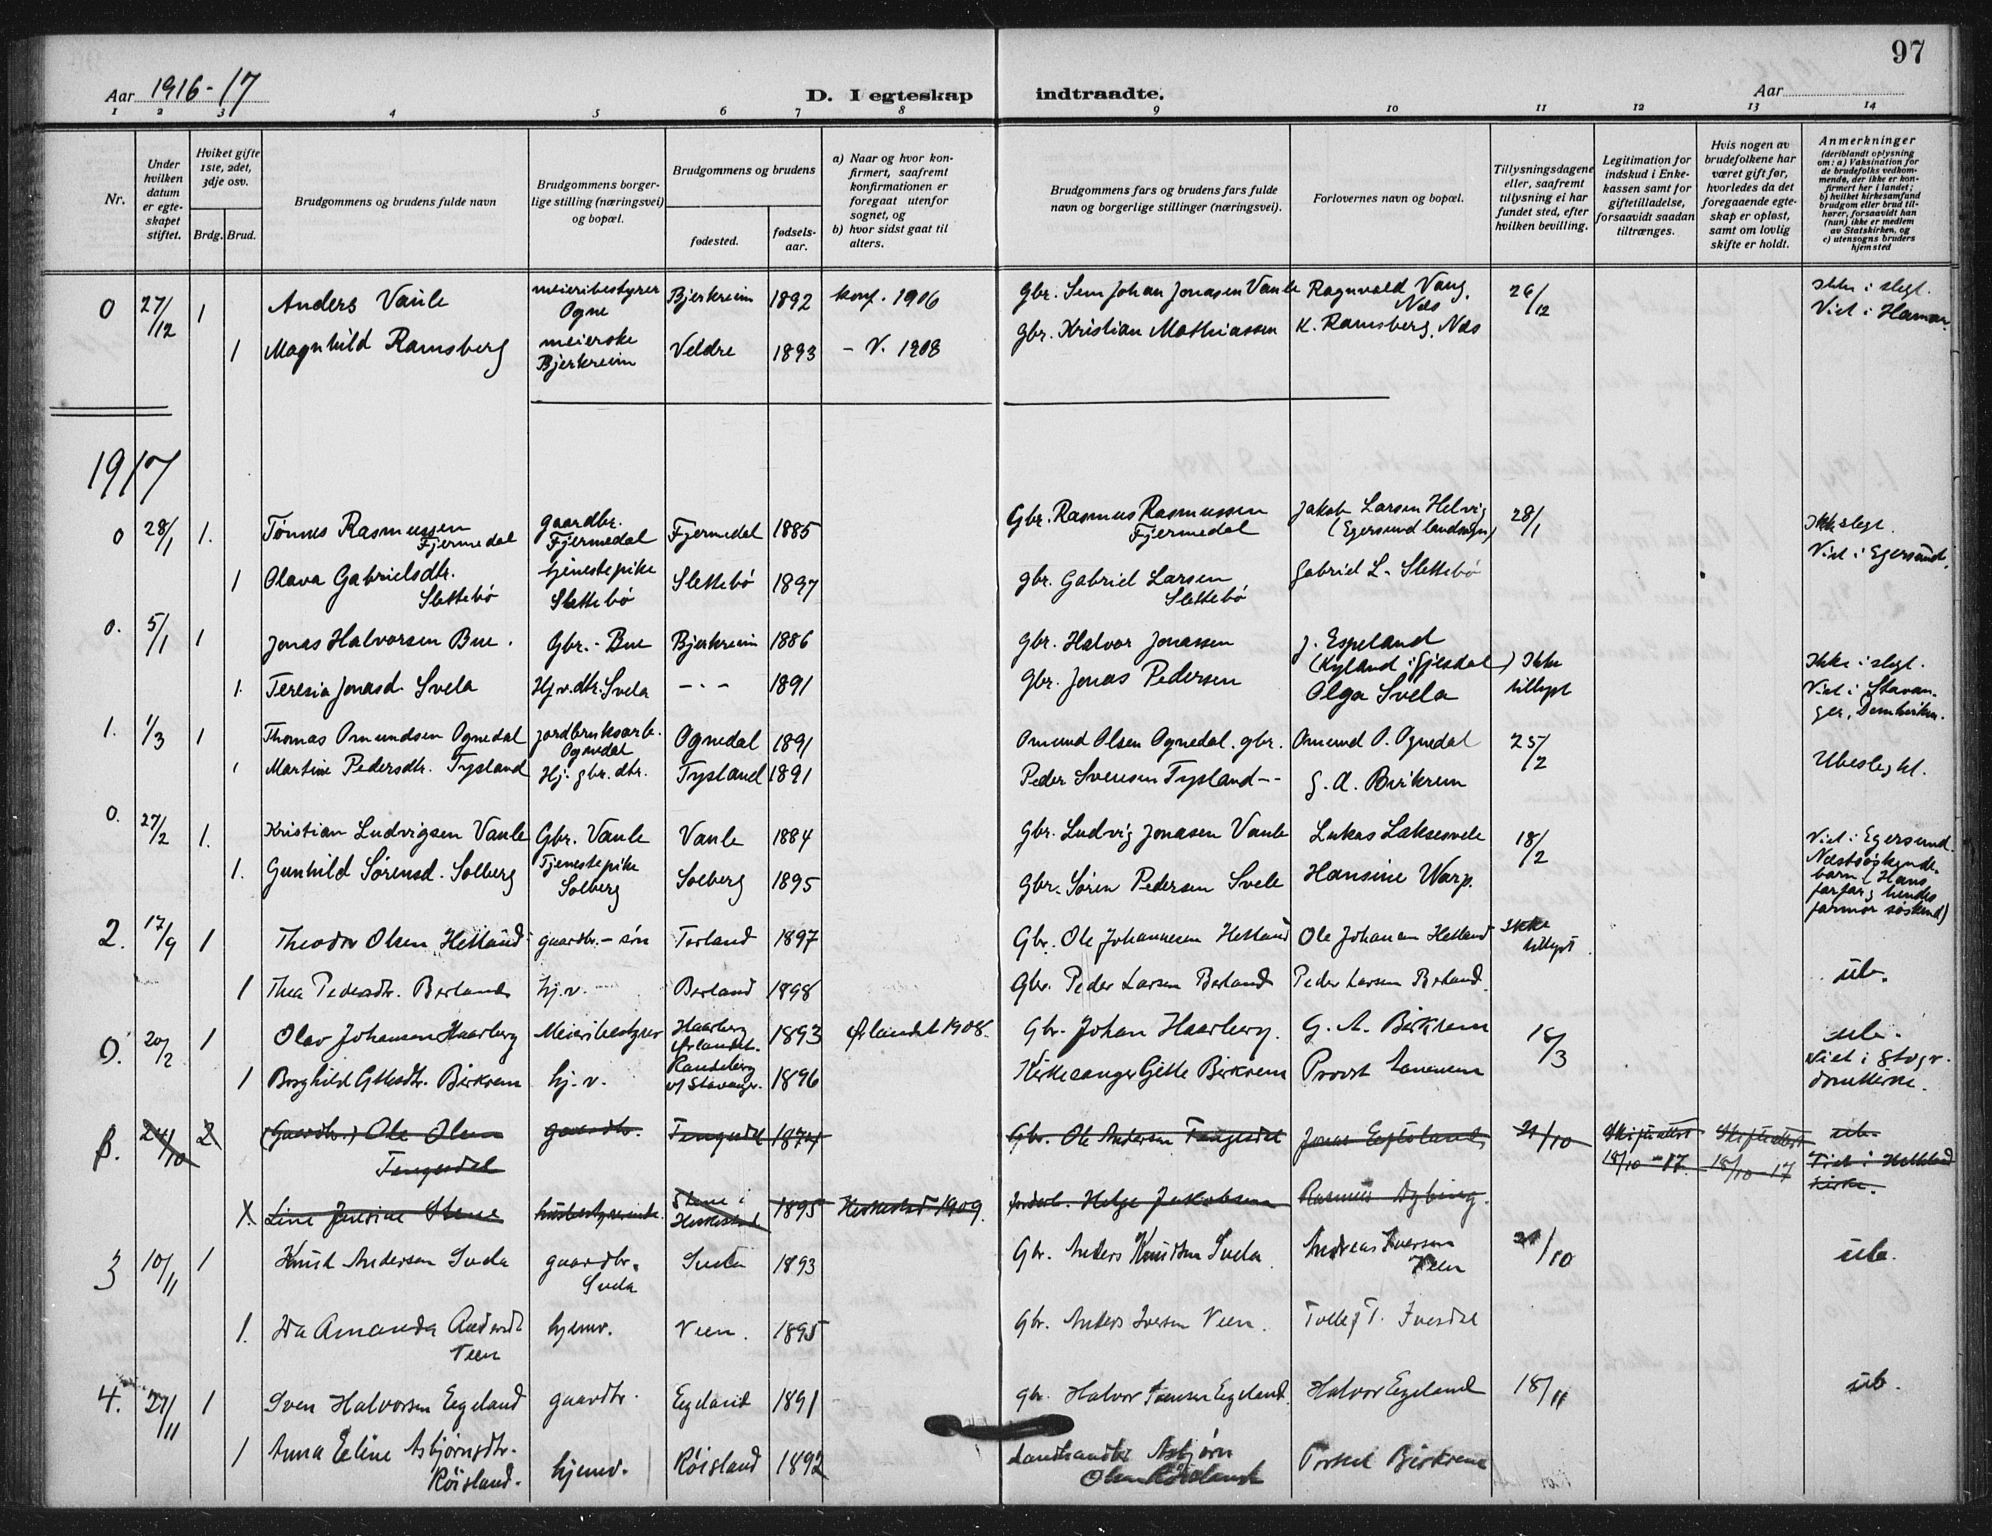 97
Aar 1916-17
D. I egteskap indtraadte.
Aar
1 2 3 4 5 6 7 8 9 10 11 12 13 14
Nr.
Under hvilken datum er egteskapet stiftet.
Hviket gifte 1ste, 2det, 3dje osv.
Brdg. Brud.
Brudgommens og brudens fulde navn
Brudgommens borgerlige stilling (næringsvei) og bopæl.
Brudgommens og brudens
fødested.
fødselsaar.
a) Naar og hvor konfirmert, saafremt konfirmationen er foregaat utenfor sognet, og
b) hvor sidst gaat til alters.
Brudgommens fars og brudens fars fulde navn og borgerlige stillinger (næringsvei).
Forlovernes navn og bopæl.
Tillysningsdagene eller, saafremt tillysning ei har fundet sted, efter hvilken bevilling.
Legitimation for indskud i Enkekassen samt for giftetilladelse, forsaavidt saadan tiltrænges.
Hvis nogen av brudefolkene har været gift før, hvorledes da det foregaaende egteskap er opløst, samt om lovlig skifte er holdt.
Anmerkninger (deriblandt oplysning om: a) Vaksination for de brudefolks vedkommende, der ikke er konfirmert her i landet; b) hvilket kirkesamfund brudgom eller brud tilhører, forsaavidt han (hun) ikke er medlem av Statskirken, og c) utensogns bruders hjemsted
0 27/12 1 Anders Vaule meieribestyrer Ogne Bjerkreim 1892 konf. 1906 Gbr. Sem Johan Jonasen Vaule Ragnvald Vang, Næs 26/12 Ikke i slegt. Viet i Hamar
1 Magnhild Ramsberg meierske Bjerkreim Veldre 1893 - V. 1908 Gbr. Kristian Mathiassen K. Ramsberg, Næs
1917
0 28/1 1. Tønnes Rasmussen Fjermedal gaardbr. Fjermedal Fjermedal 1885 Gbr. Rasmus Rasmussen Fjermedal Jakob Larsen Helvig (Egersund landsogn) 28/1 Ikke slegt. Viet i Egersund.
1 Olava Gabrielsdtr. Slettebø tjenestepike Slettebø Slettebø 1897 gbr. Gabriel Larsen Slettebø Gabriel L. Slettebø
0. 5/1 1 Jonas Halvorsen Bue. Gbr. - Bue Bjerkreim 1886 Gbr. Halvor Jonassen J. Espeland (Kyland i Gjesdal) Ikke tillyst Ikke i slegt. Viet i Stavanger, Domkirken.
1. Teresia Jonasd. Svela Hj.v. dtr. Svela - - - 1891 Gbr. Jonas Pedersen Olga Svela
1. 1/3 1 Thomas Omundsen Ognedal jordbruksarb. Ognedal Ognedal 1891 Omund Olsen Ognedal, gbr. Omund O. Ognedal 25/2 Ubeslegtet.
1 Martine Pedersdtr. Tysland Hj. gbr. dtr. Tysland 1891 Peder Svensen Tysland - - G. A. Birkrem
0. 27/2 1. Kristian Ludvigsen Vaule Gbr. Vaule Vaule 1884 Gbr. Ludvig Jonasen Vaule Lukas Laksesvele 18/2 Viet i Egersund. Næstsøskendebarn (Hans farfar, hendes farmor søskend)
1. Gunhild Sørensd. Solberg Tjenestepike Solberg Solberg 1895 Gbr. Søren Pedersen Svele Hansine Warp.
2. 17/9 1 Theodor Olsen Hetland gaardbr. - søn Torland 1897 Gbr. Ole Johannesen Hetland Ole Johannesen Hetland Ikke tillyst
1 Thea Pedersdtr. Berland hj.v. Berland 1898 Gbr. Peder Larsen Berland Peder Larsen Berland. ub.
0. 20/2 1 Olav Johansen Haarberg Meieribestyrer Haarberg Ørlandet. 1893 Ørlandet 1908. Gbr. Johan Haarberg. G. A. Birkrem 18/3 ub. Viet i Stvgr. domkirke.
1 Borghild Gittesdtr. Birkrem hj. v. Randeberg v/ Stavanger. 1896 Kirkesanger Gitle Birkrem Provst
β. 24/10 2 (Gaardbr.) Ole Olsen Tengesdal gaardbr. Tengesdal 1874 Gbr. Ole Andersen Tengesdal Jonas 21/10 Skifteattest 18/10 - 17 Skifteattest 18/10 - 17 ub. Viet i Helleland kirke.
X. Line Jensine Stene husbestyrerinde. Stene i Heskestad 1895 Heskestad 1909. Jordbr. Helge Jakobsen Rasmus Nybing.
3 10/11 1 Knud Andersen Svela gaardbr. Svela Svela 1893 Gbr. Anders Knudsen Svela Andreas Iversen Veen 21/10 ub.
1. Ida Amanda Andersdt Veen hjemv. Veen. 1895 Gbr. Anders Iversen Veen. Tollef T. Ivesdal
4. 27/11 1 Sven Halvorsen Eegeland gaardbr. Eegeland 1891 gbr. Halvor Eegeland Halvor Eegeland 18/11 ub.
1 Anna Eline Asbjørnsdtr. Røisland. hjemv. Røisland 1892 Landhandler Asbjørn Olsen Røisland Torkel Birkrem